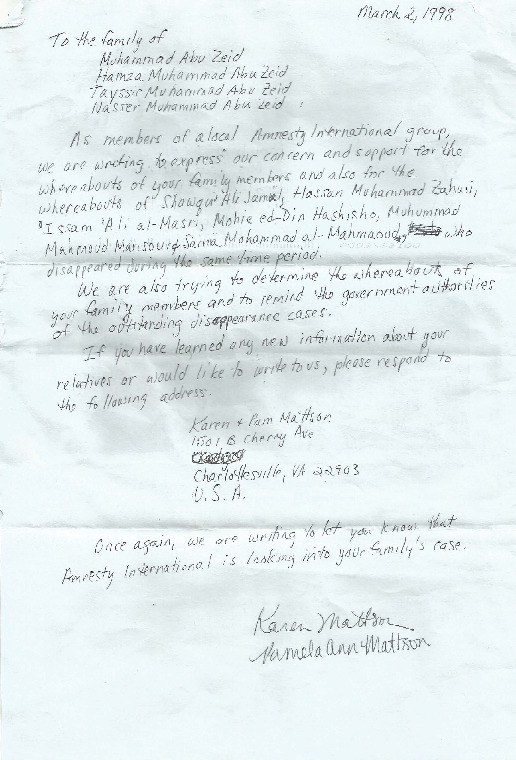 March 2, 1998
To the family of
Muhammad Abu Zeid
Hamza Muhammad Abu Zeid
Tayssir Muhammad Abu Zeid
Nasser Muhammad Abu Zeid
As members of a local Amnesty International group,
we are writing to express our concern and support for the
whereabouts of your family members and also for the
whereabouts of Shawqu Ali Jamal, Hassan Muhammad Zahusi,
'Issam 'Ali al-Masri, Mohie ed-Din Hashisho, Muhummad
Mahmoud Mansour & Sama Mohammad al-Mahmaoud, who
disappeared during the same time period.
We are also trying to determine the whereabouts of
your family members and to remind the government authorities
of the outstanding disappearance cases.
If you have learned any new information about your
relatives or would like to write to us, please respond to
the following address.
Karen & Pam Mattson
1501 B Cherry Ave
Charlottesville, VA 22903
U.S.A.
Once again, we are writing to let you know that
Amnesty International is looking into your family's case.
Karen Mattson
Pamela Ann Mattson